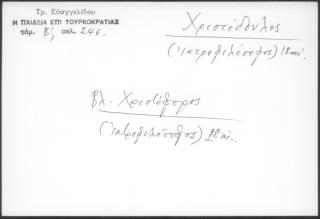 Τρ. Εὐαγγελίδου
Η ΠΑΙΔΕΙΑ ΕΠΙ ΤΟΥΡΚΟΚΡΑΤΙΑΣ
τόμ. Β', σελ. 246.
Χριστόδουλος
(Ἰατροφιλόσοφος) 18 αἰ.
Βλ. Χριστόφορος
(Ἰατροφιλόσοφος) 18 αἰ.